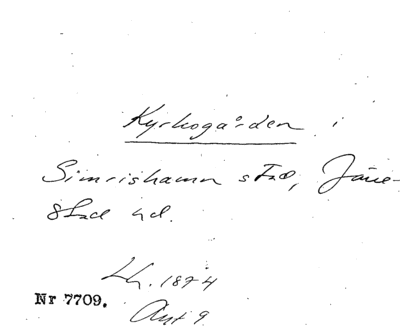 Kyrkogården i
Simrishamn stad, Järre-
stad hd.
Lh. 1874
Nr 7709.
Avt 9